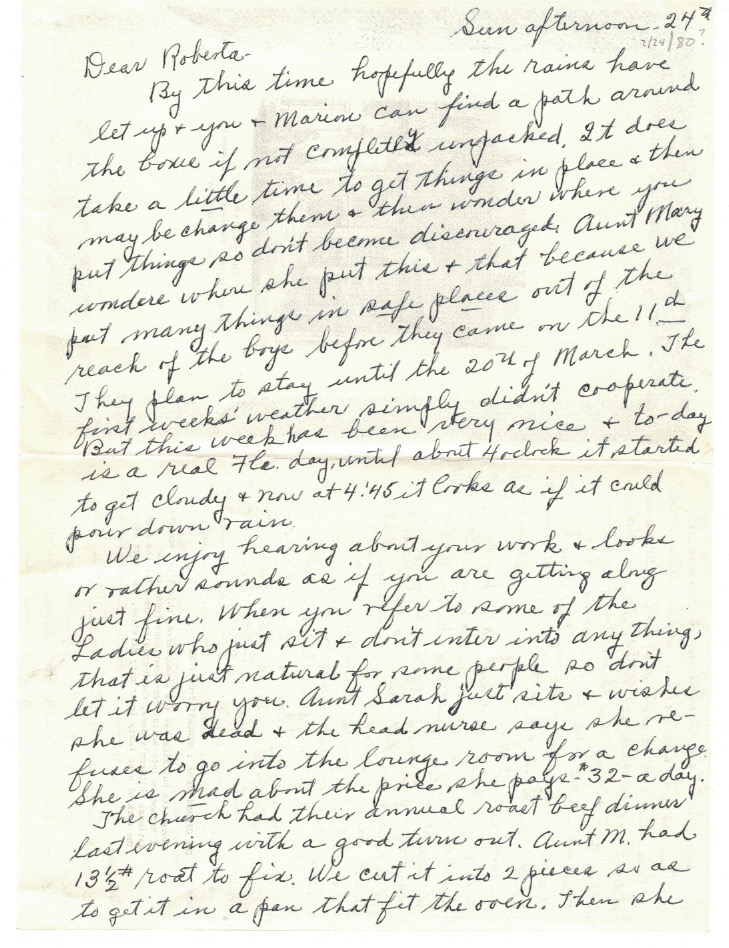 Sun afternoon - 24th
2/24/80?
Dear Roberta -
By this time hopefully the rains have
let up & you & Marion can find a path around
the boxes if not completely unpacked. It does
take a little time to get things in place & then
may be change them & then wonder where you
put things so don't become discouraged. Aunt Mary
wonders where she put this & that because we
put many things in safe places out of the
reach of the boys before they came on the 11th
They plan to stay until the 20th of March. The
first weeks' weather simply didn't cooperate.
But this week has been very nice & to-day
is a real Fla. day, until about 4 oclock it started
to get cloudy & now at 4:45 it looks as if it could
pour down rain.
We enjoy hearing about your work & looks
or rather sounds as if you are getting along
just fine. When you refer to some of the
Ladies who just sit & don't enter into any thing,
that is just natural for some people so don't
let it worry you. Aunt Sarah just sits & wishes
she was dead & the head nurse says she re-
fuses to go into the lounge room for a change.
She is mad about the price she pays - $32 - a day.
The church had their annual roast beef dinner
last evening with a good turn out. Aunt M. had
13½# roat to fix. We cut it into 2 pieces so as
to get it in a pan that fit the oven. Then she